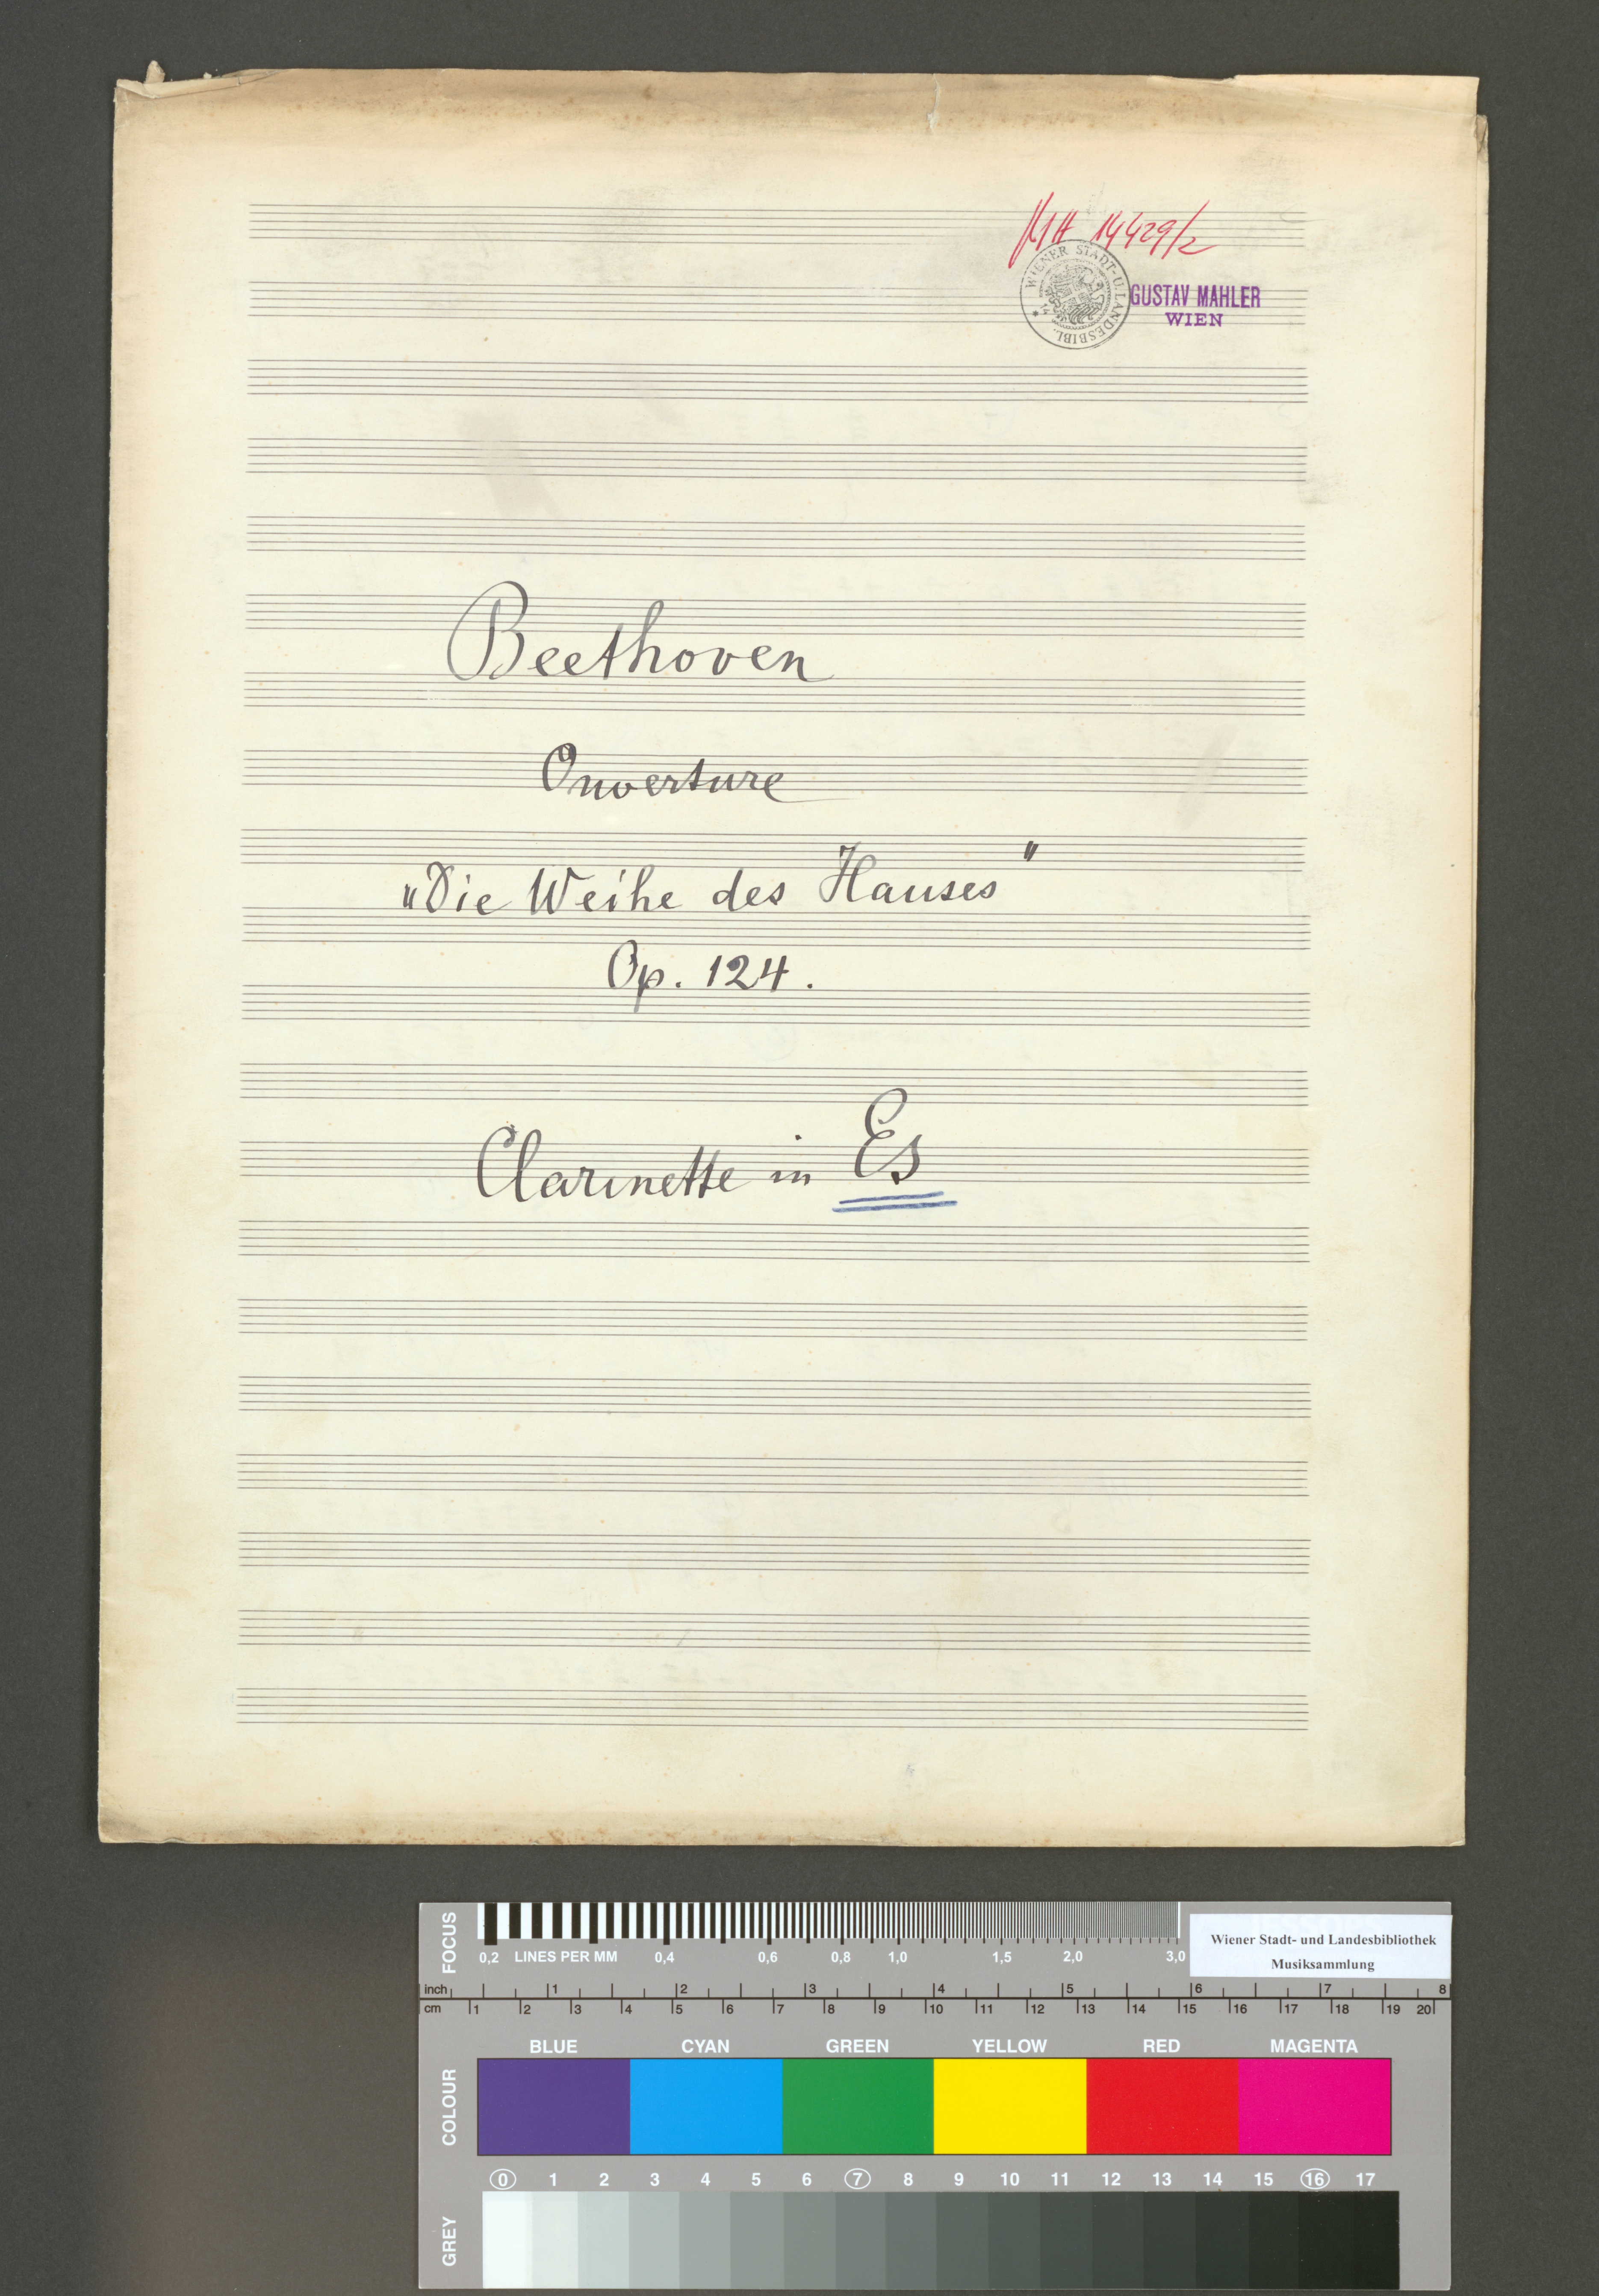 MH 14429/2
WIENER STADT-U. LANDESBIBL.
GUSTAV MAHLER
WIEN
Beethoven
Ouverture
„Die Weihe des Hauses"
Op. 124.
Clarinette in Es
FOCUS
0,2 LINES PER MM 0,4 0,6 0,8 1,0 1,5 2,0 3,0
Wiener Stadt- und Landesbibliothek
Musiksammlung
inch 1 2 3 4 5 6 7 8
cm 1 2 3 4 5 6 7 8 9 10 11 12 13 14 15 16 17 18 19 20
COLOUR
BLUE CYAN GREEN YELLOW RED MAGENTA
0 1 2 3 4 5 6 7 8 9 10 11 12 13 14 15 16 17
GREY